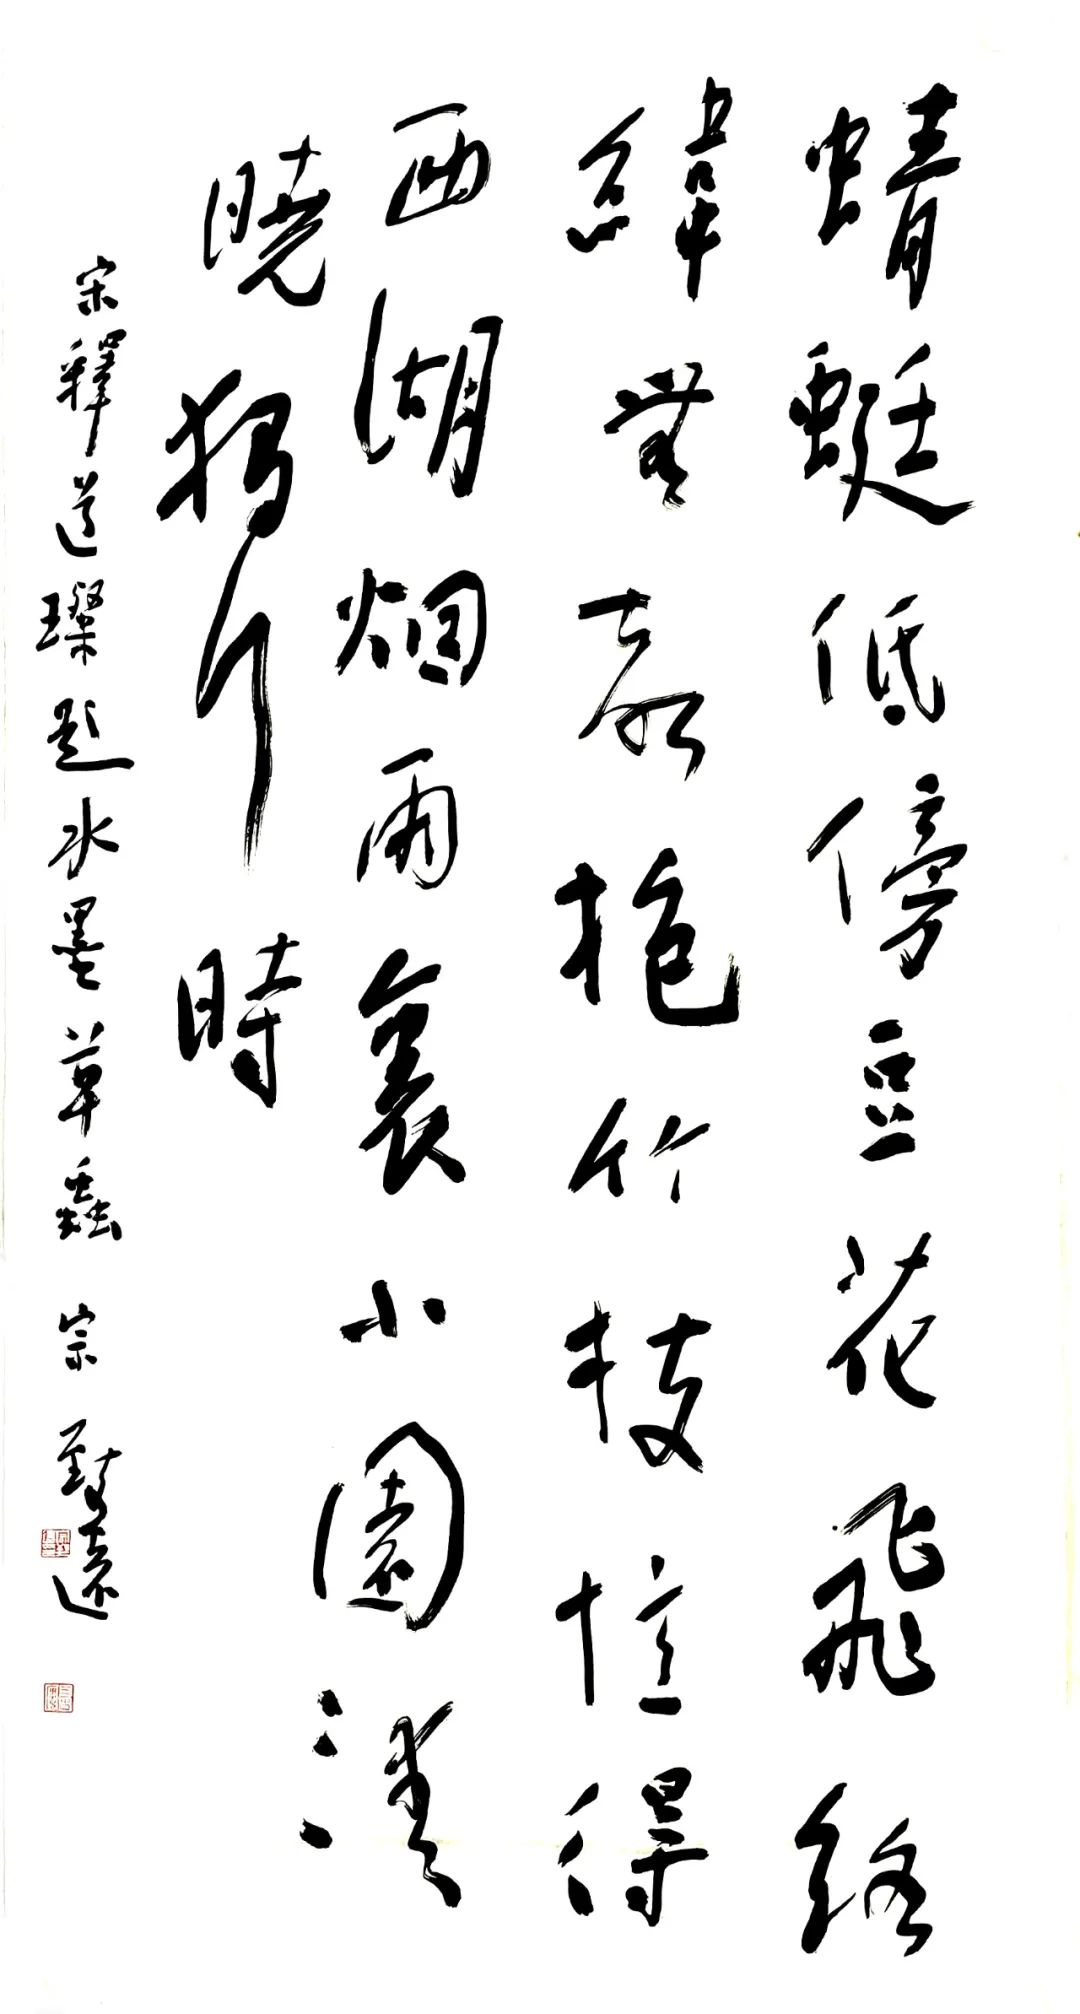 蜻蜓低傍豆花飛絡
緯無聲抱竹枝憶得
西湖烟雨裏小園清
曉獨行時
宋釋道璨題水墨草蟲 宗